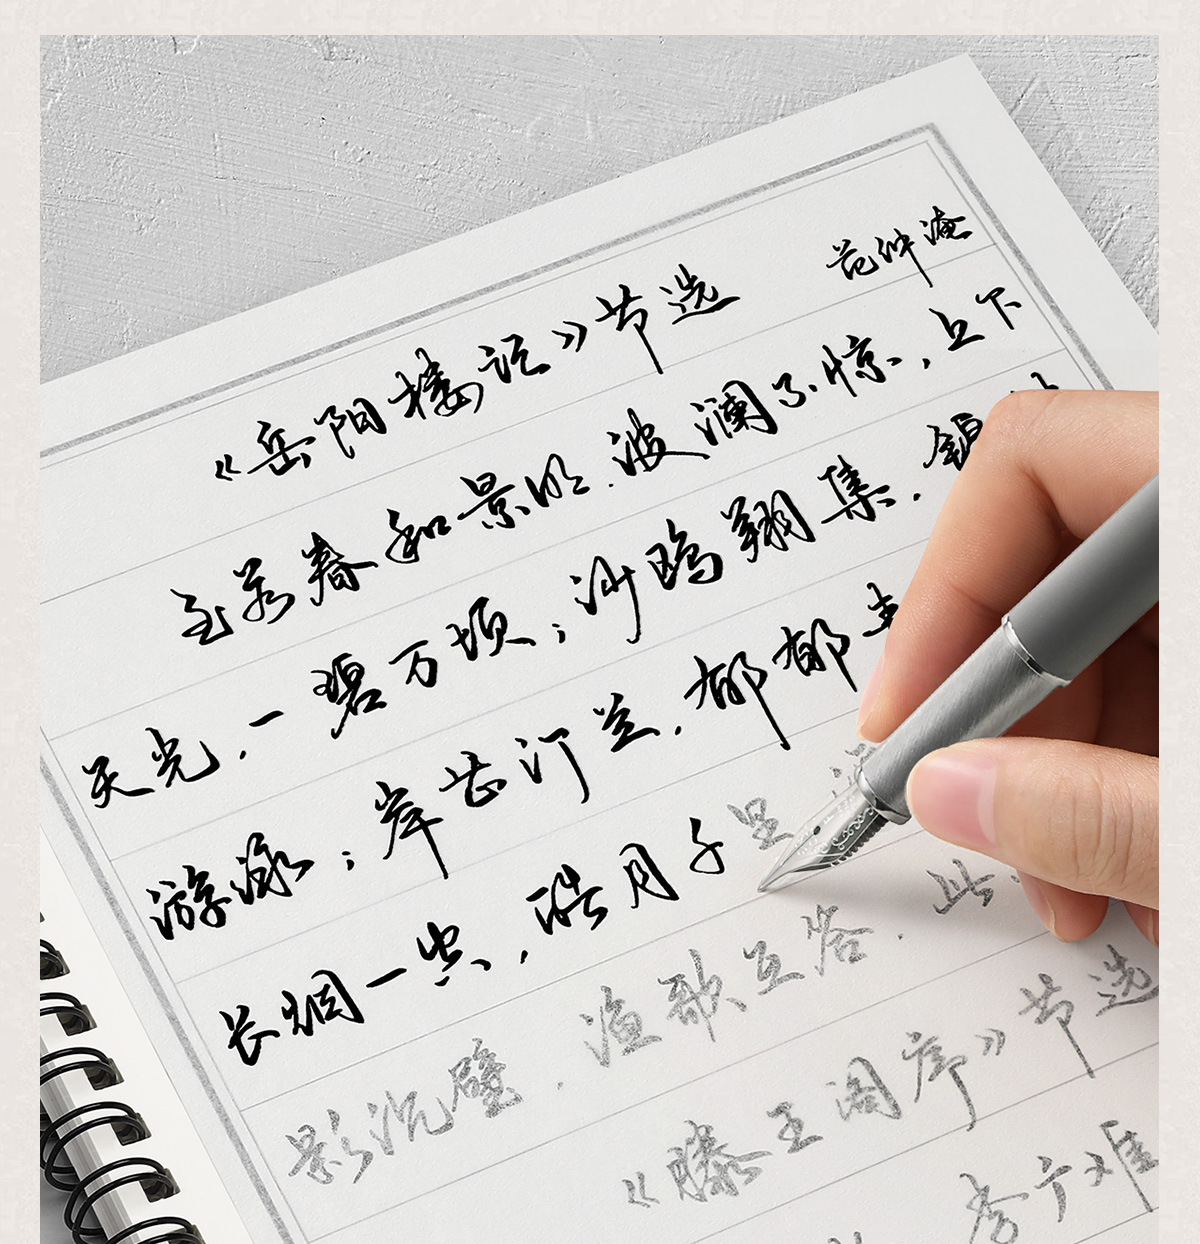 《岳阳楼记》节选 范仲淹
至若春和景明,波澜不惊,上下
天光,一碧万顷;沙鸥翔集,锦
游泳;岸芷汀兰,郁郁
长烟一空,皓月千里
影沉璧,渔歌互答,此
《滕王阁序》节选
李广难